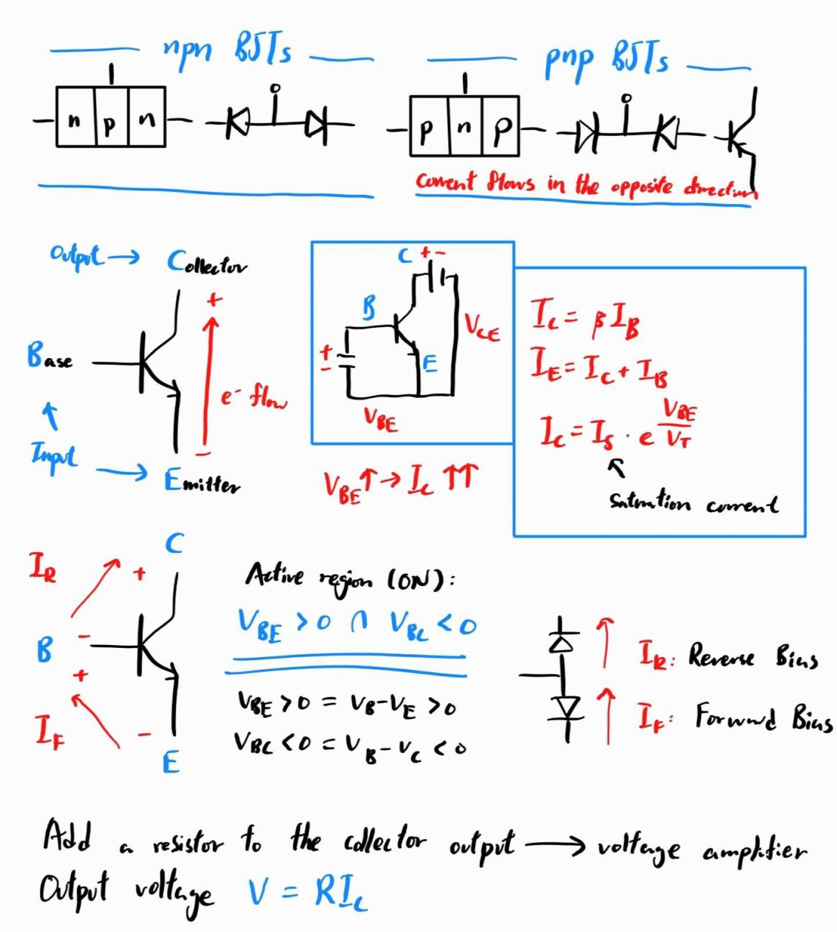 npn BJTs
pnp BJTs
n p n
p n p
Current flows in the opposite direction
Output → Collector
Base
Input → Emitter
+
e⁻ flow
−
C + −
B
E
+
−
V_CE
V_BE
V_BE ↑ → I_C ↑↑
I_C = β I_B
I_E = I_C + I_B
I_C = I_S · e V_BE/V_T
Saturation current
C
I_R
+
B
−
+
I_F
−
E
Active region (ON):
V_BE > 0 ∩ V_BC < 0
V_BE > 0 = V_B - V_E > 0
V_BC < 0 = V_B - V_C < 0
I_R: Reverse Bias
I_F: Forward Bias
Add a resistor to the collector output → voltage amplifier
Output voltage V = RI_C